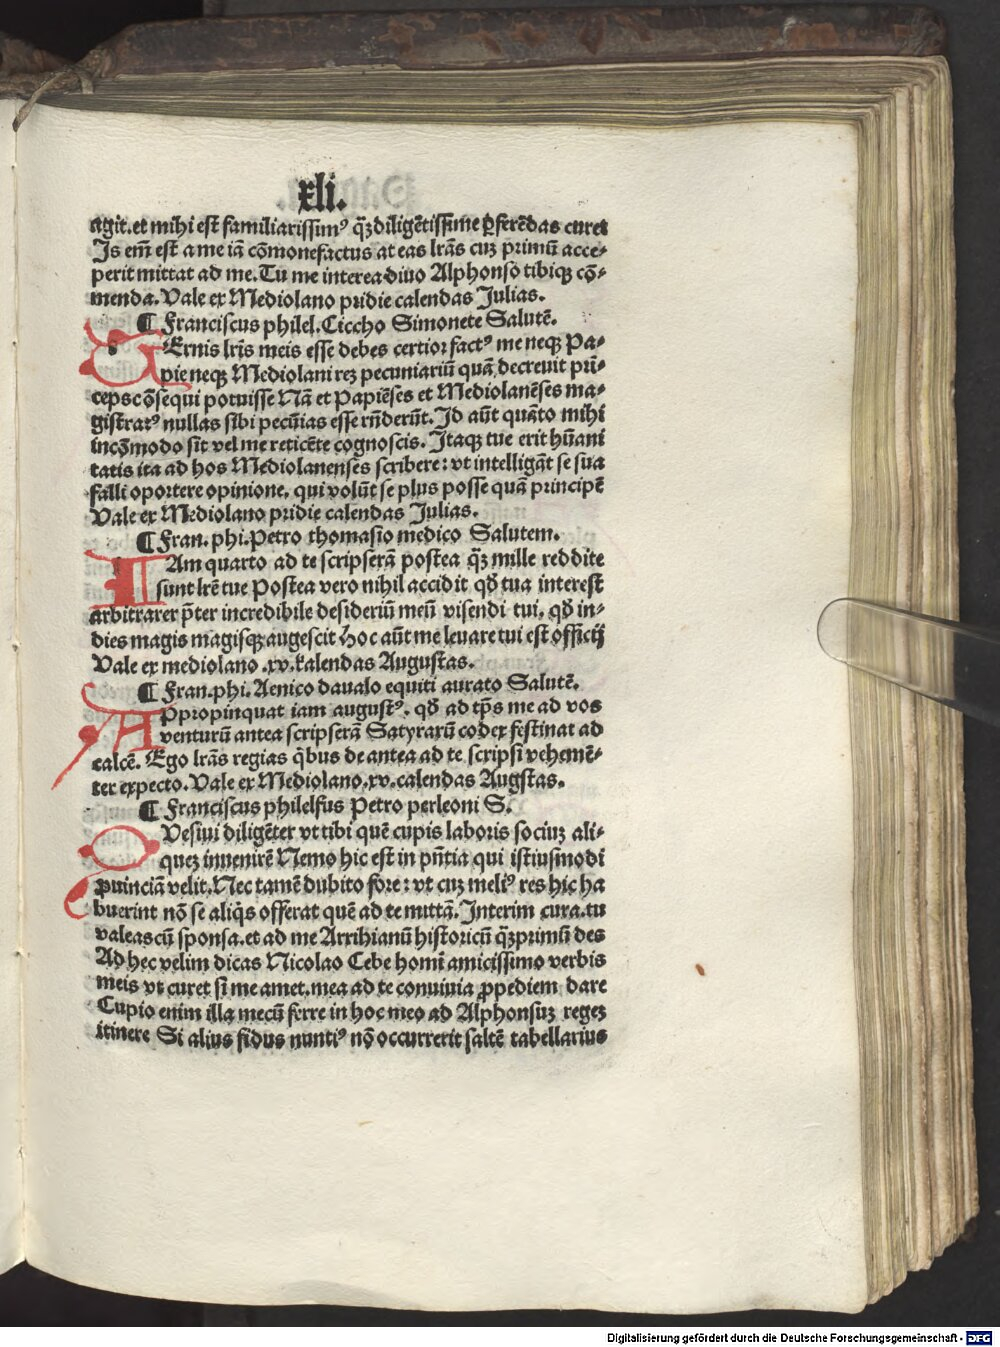 xli.
agit. et mihi est familiarissimꝰ qȝ diligētissime ꝑferēdas curet
Is em̄ est a me iā cōmonefactus at eas lrās cuȝ primū acce-
perit mittat ad me. Tu me interea diuo Alphonso tibiqȝ cō-
menda. Vale ex Mediolano pridie calendas Julias.
¶ Franciscus philel. Ciccho Simonete Salutē.
Ernis lrīs meis esse debes certior factꝰ me neqȝ Pa-
pie neqȝ Mediolani reȝ pecuniariū quā decreuit prī-
ceps cōsequi potuisse Nā et Papiēses et Mediolanēses ma-
gistratꝰ nullas sibi pecūias esse rn̄derūt. Id aūt quāto mihi
incōmodo sit vel me reticēte cognoscis. Itaqȝ tue erit hūani
tatis ita ad hos Mediolanenses scribere: vt intelligāt se sua
falli oportere opinione, qui volūt se plus posse quā principē
Vale ex Mediolano pridie calendas Julias.
¶ Fran. phi. Petro thomasio medico Salutem.
IAm quarto ad te scripserā postea qȝ mille reddite
sunt lrē tue Postea vero nihil accidit qđ tua interest
arbitrarer p̄ter incredibile desideriū meū visendi tui, qđ in-
dies magis magisqȝ augescit hoc aūt me leuare tui est officij
Vale ex mediolano .xv. kalendas Augustas.
¶ Fran. phi. Aenico daualo equiti aurato Salutē.
APpropinquat iam augustꝰ. qđ ad tp̄s me ad vos
venturū antea scripserā Satyrarū codex festinat ad
calcē. Ego lrās regias q̄bus de antea ad te scripsi vehemē-
ter expecto. Vale ex Mediolano .xv. calendas Augstas.
¶ Franciscus philelfus Petro perleoni S.
QVesiui diligēter vt tibi quē cupis laboris sociuȝ ali-
queȝ inuenirē Nemo hic est in pn̄tia qui istiusmodi
ꝓuinciā velit. Nec tamē dubito fore: vt cuȝ meliꝰ res hic ha
buerint nō se aliq̄s offerat quē ad te mittā. Interim cura. tu
valeas cū sponsa. et ad me Arrihianū historicū qȝprimū des
Ad hec velim dicas Nicolao Cebe homī amicissimo verbis
meis vt curet si me amet. mea ad te conuiuia ꝓpediem dare
Cupio enim illa mecū ferre in hoc meo ad Alphonsuȝ regeȝ
itinere Si alius fidus nuntiꝰ nō occurrerit saltē tabellarius
Digitalisierung gefördert durch die Deutsche Forschungsgemeinschaft - DFG